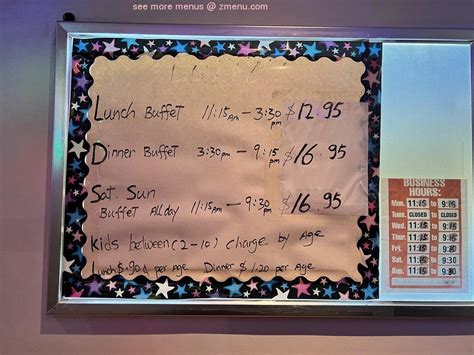 see more menus @ zmenu.com
Lunch Buffet 11:15am - 3:30pm $12.95
Dinner Buffet 3:30pm - 9:15pm $16.95
Sat. Sun
Buffet All day 11:15Am - 9:30pm $16.95
Kids between (2-10) charge by Age
Lunch $.90¢ per Age Dinner $1.20 per Age
BUSINESS
HOURS:
Mon. 11:15 to 9:15
Tues. CLOSED to CLOSED
Wed. 11:15 to 9:15
Thur. 11:15 to 9:15
Fri. 11:15 to
Sat. 11:15 to 9:30
Sun. 11:15 to